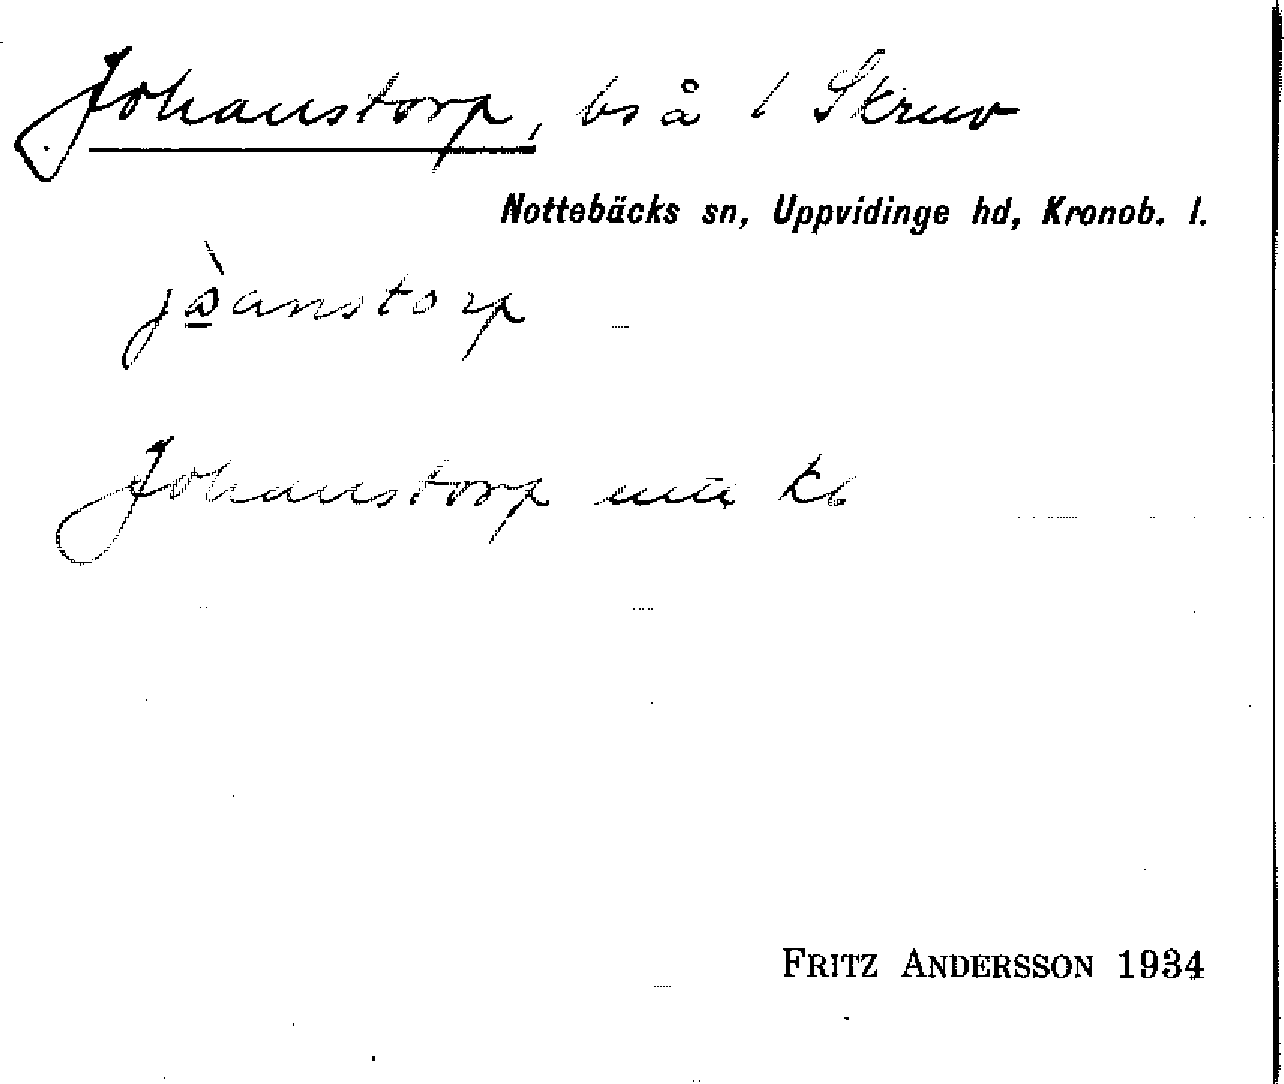 Johanstorp, bs å 1 Skruv
Nottebäcks sn, Uppvidinge hd, Kronob. l.
jòanstorp
Johanstorp kb
FRITZ ANDERSSON 1934